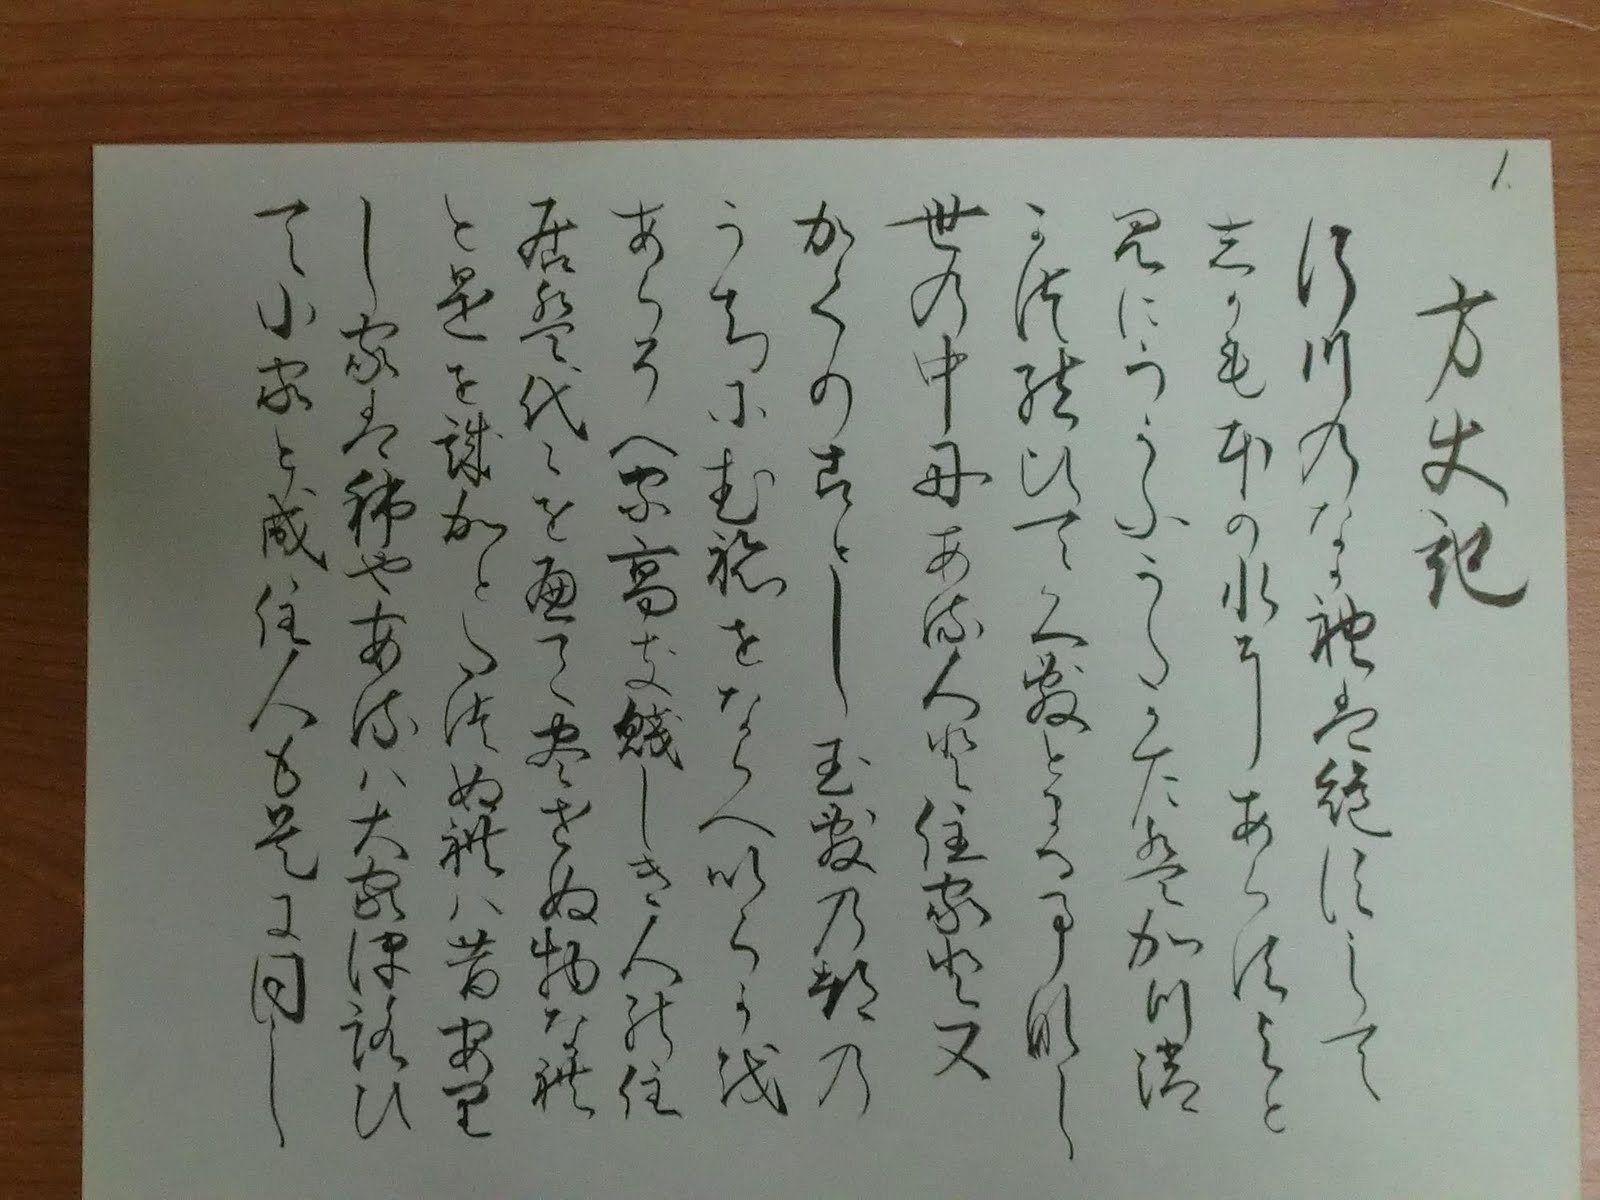 1.
方丈記
行川のなかれは絶すして
志かも本の水にあらすよと
見にうかふうたかたは加川消
かつ結ひて久敷とまる事なし
世の中にある人と住家と又
かくのことし 玉敷の都の
うちにむねをならへいらかを
あらそへ家高き賤しき人の住
居は代ゝをへて尽せぬ物なれ
と是を誠かとたつぬれハ昔あり
し家は稀やあるハ大家ほろひ
て小家と成住人も是に同し